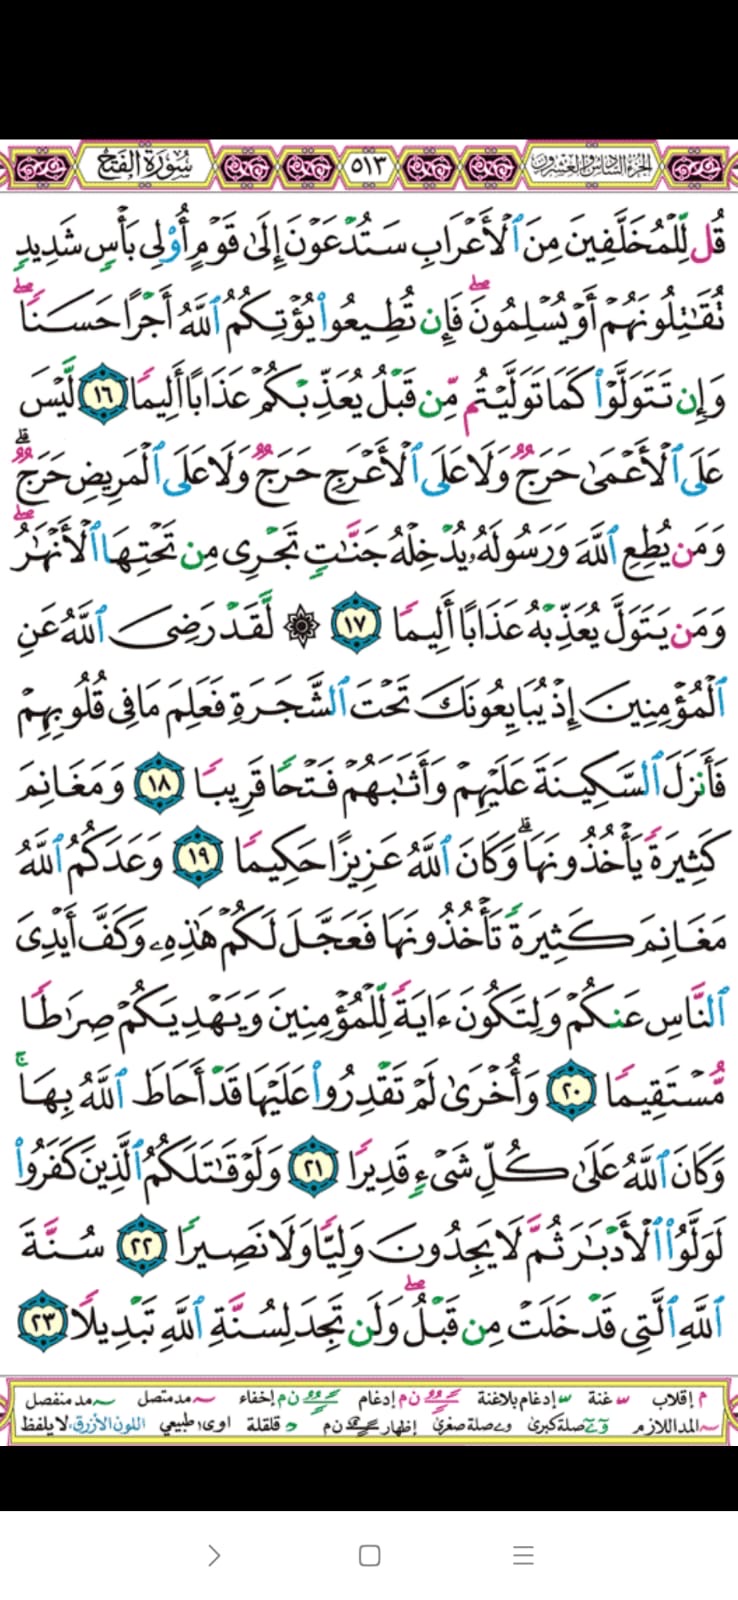 الجزء السادس والعشرون ٥١٣ سورة الفتح
قُل لِّلْمُخَلَّفِينَ مِنَ ٱلْأَعْرَابِ سَتُدْعَوْنَ إِلَىٰ قَوْمٍ أُو۟لِى بَأْسٍ شَدِيدٍ
تُقَـٰتِلُونَهُمْ أَوْ يُسْلِمُونَ ۖ فَإِن تُطِيعُوا۟ يُؤْتِكُمُ ٱللَّهُ أَجْرًا حَسَنًا ۖ
وَإِن تَتَوَلَّوْا۟ كَمَا تَوَلَّيْتُم مِّن قَبْلُ يُعَذِّبْكُمْ عَذَابًا أَلِيمًا ١٦ لَّيْسَ
عَلَى ٱلْأَعْمَىٰ حَرَجٌ وَلَا عَلَى ٱلْأَعْرَجِ حَرَجٌ وَلَا عَلَى ٱلْمَرِيضِ حَرَجٌ ۗ
وَمَن يُطِعِ ٱللَّهَ وَرَسُولَهُۥ يُدْخِلْهُ جَنَّـٰتٍ تَجْرِى مِن تَحْتِهَا ٱلْأَنْهَـٰرُ ۖ
وَمَن يَتَوَلَّ يُعَذِّبْهُ عَذَابًا أَلِيمًا ١٧ ۞ لَّقَدْ رَضِىَ ٱللَّهُ عَنِ
ٱلْمُؤْمِنِينَ إِذْ يُبَايِعُونَكَ تَحْتَ ٱلشَّجَرَةِ فَعَلِمَ مَا فِى قُلُوبِهِمْ
فَأَنزَلَ ٱلسَّكِينَةَ عَلَيْهِمْ وَأَثَـٰبَهُمْ فَتْحًا قَرِيبًا ١٨ وَمَغَانِمَ
كَثِيرَةً يَأْخُذُونَهَا ۗ وَكَانَ ٱللَّهُ عَزِيزًا حَكِيمًا ١٩ وَعَدَكُمُ ٱللَّهُ
مَغَانِمَ كَثِيرَةً تَأْخُذُونَهَا فَعَجَّلَ لَكُمْ هَـٰذِهِۦ وَكَفَّ أَيْدِىَ
ٱلنَّاسِ عَنكُمْ وَلِتَكُونَ ءَايَةً لِّلْمُؤْمِنِينَ وَيَهْدِيَكُمْ صِرَٰطًا
مُّسْتَقِيمًا ٢٠ وَأُخْرَىٰ لَمْ تَقْدِرُوا۟ عَلَيْهَا قَدْ أَحَاطَ ٱللَّهُ بِهَا ۚ
وَكَانَ ٱللَّهُ عَلَىٰ كُلِّ شَىْءٍ قَدِيرًا ٢١ وَلَوْ قَـٰتَلَكُمُ ٱلَّذِينَ كَفَرُوا۟
لَوَلَّوُا۟ ٱلْأَدْبَـٰرَ ثُمَّ لَا يَجِدُونَ وَلِيًّا وَلَا نَصِيرًا ٢٢ سُنَّةَ
ٱللَّهِ ٱلَّتِى قَدْ خَلَتْ مِن قَبْلُ ۖ وَلَن تَجِدَ لِسُنَّةِ ٱللَّهِ تَبْدِيلًا ٢٣
م إقلاب غنة إدغام بلاغنة ن م إدغام ن م إخفاء مد متصل مد منفصل
المد اللازم صلة كبرى صلة صغرى إظهار ن م قلقلة اوى طبيعي اللون الأزرق: لا يلفظ